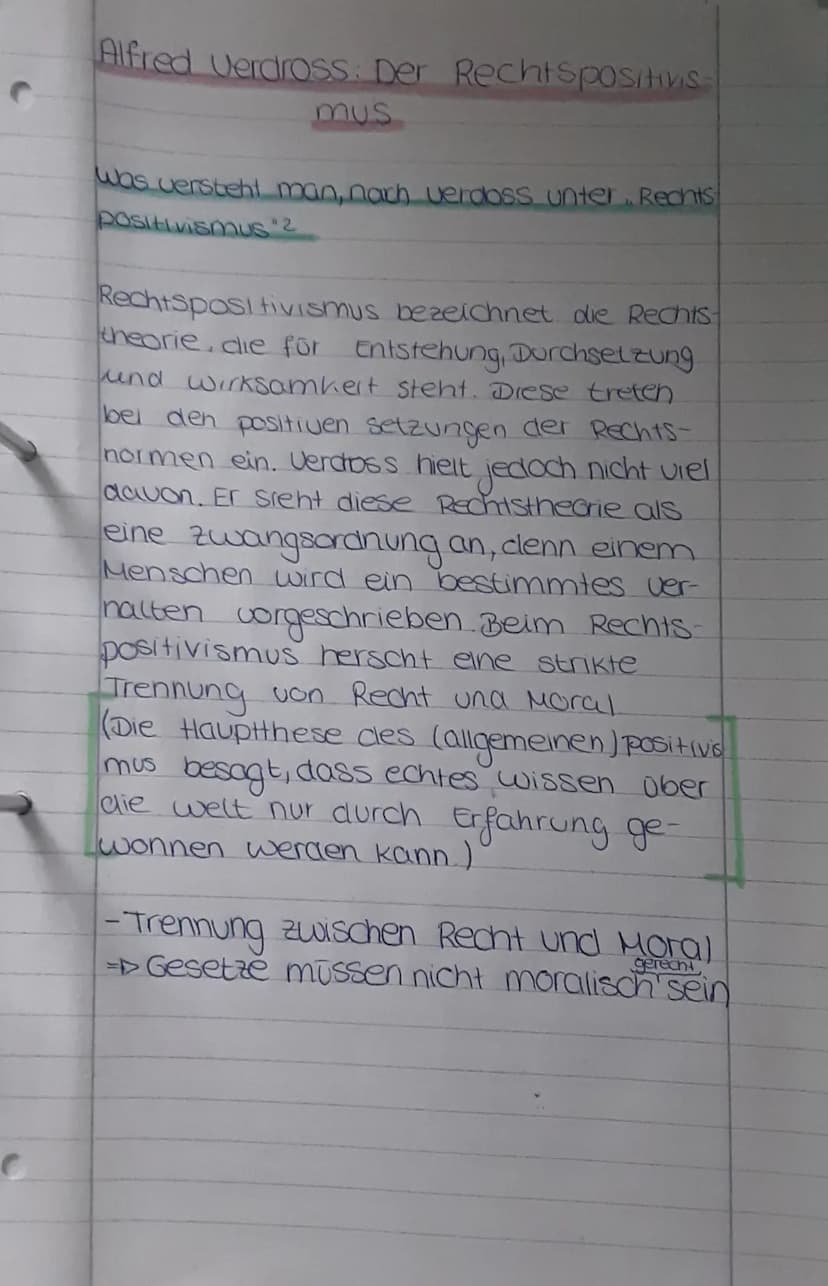 Alfred Verdross: Der Rechtspositivis-
mus
Was versteht man, nach Verdoss unter „Rechts
positivismus"?
Rechtspositivismus bezeichnet die Rechts-
theorie, die für Entstehung, Durchsetzung
und Wirksamkeit steht. Diese treten
bei den positiven Setzungen der Rechts-
normen ein. Verdross hielt jedoch nicht viel
davon. Er sieht diese Rechtstheorie als
eine Zwangsordnung an, denn einem
Menschen wird ein bestimmtes Ver-
halten vorgeschrieben. Beim Rechts-
positivismus herscht eine strikte
Trennung von Recht und Moral
(Die Hauptthese des (allgemeinen) Positivis
mus besagt, dass echtes Wissen über
die Welt nur durch Erfahrung ge-
wonnen werden kann.)
- Trennung zwischen Recht und Moral
=> Gesetze müssen nicht moralisch gerecht sein